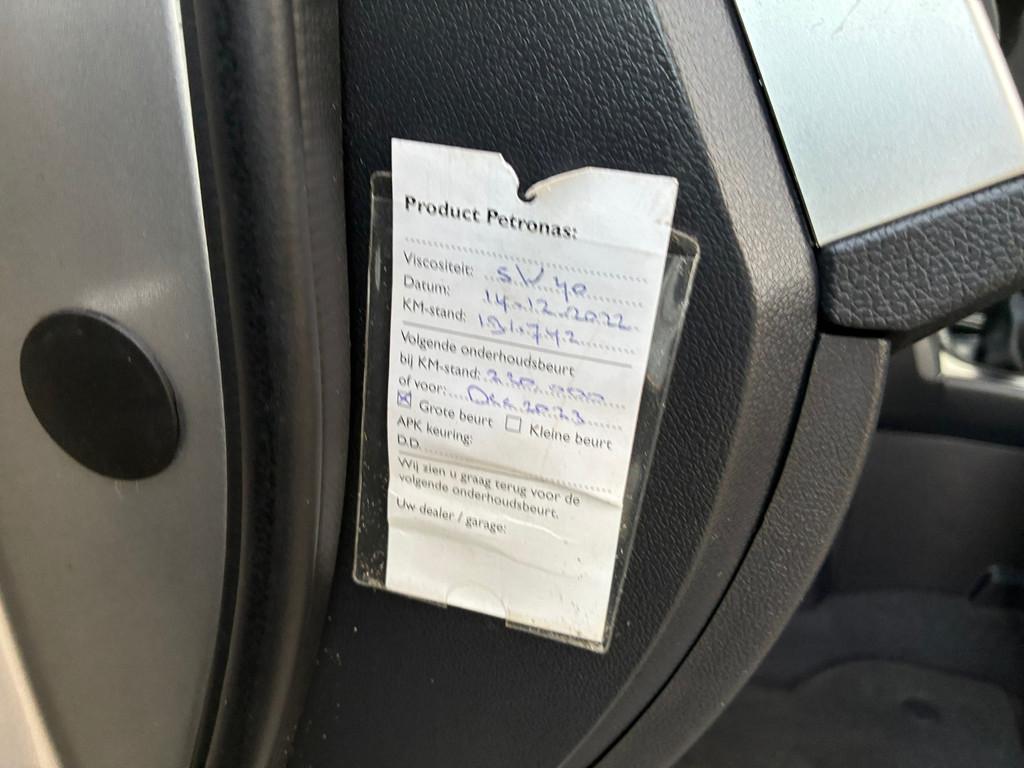 Product Petronas:
Viscositeit: 5W40
Datum: 14.12.2022
KM-stand:
Volgende onderhoudsbeurt
bij KM-stand:
of voor: Dec 2023
☒ Grote beurt ☐ Kleine beurt
APK keuring:
D.D.
Wij zien u graag terug voor de
volgende onderhoudsbeurt.
Uw dealer / garage: